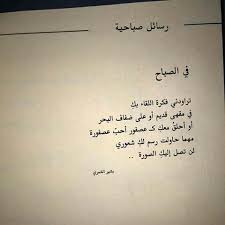 رسائل صباحية
في الصباح
تراودني فكرة اللقاء بكِ
في مقهى قديم أو على ضفاف البحر
أو أحلقُ معك كـ عصفور أحبّ عصفورة
مهما حاولت رسم لكِ شعوري
لن تصل إليكِ الصورة ..